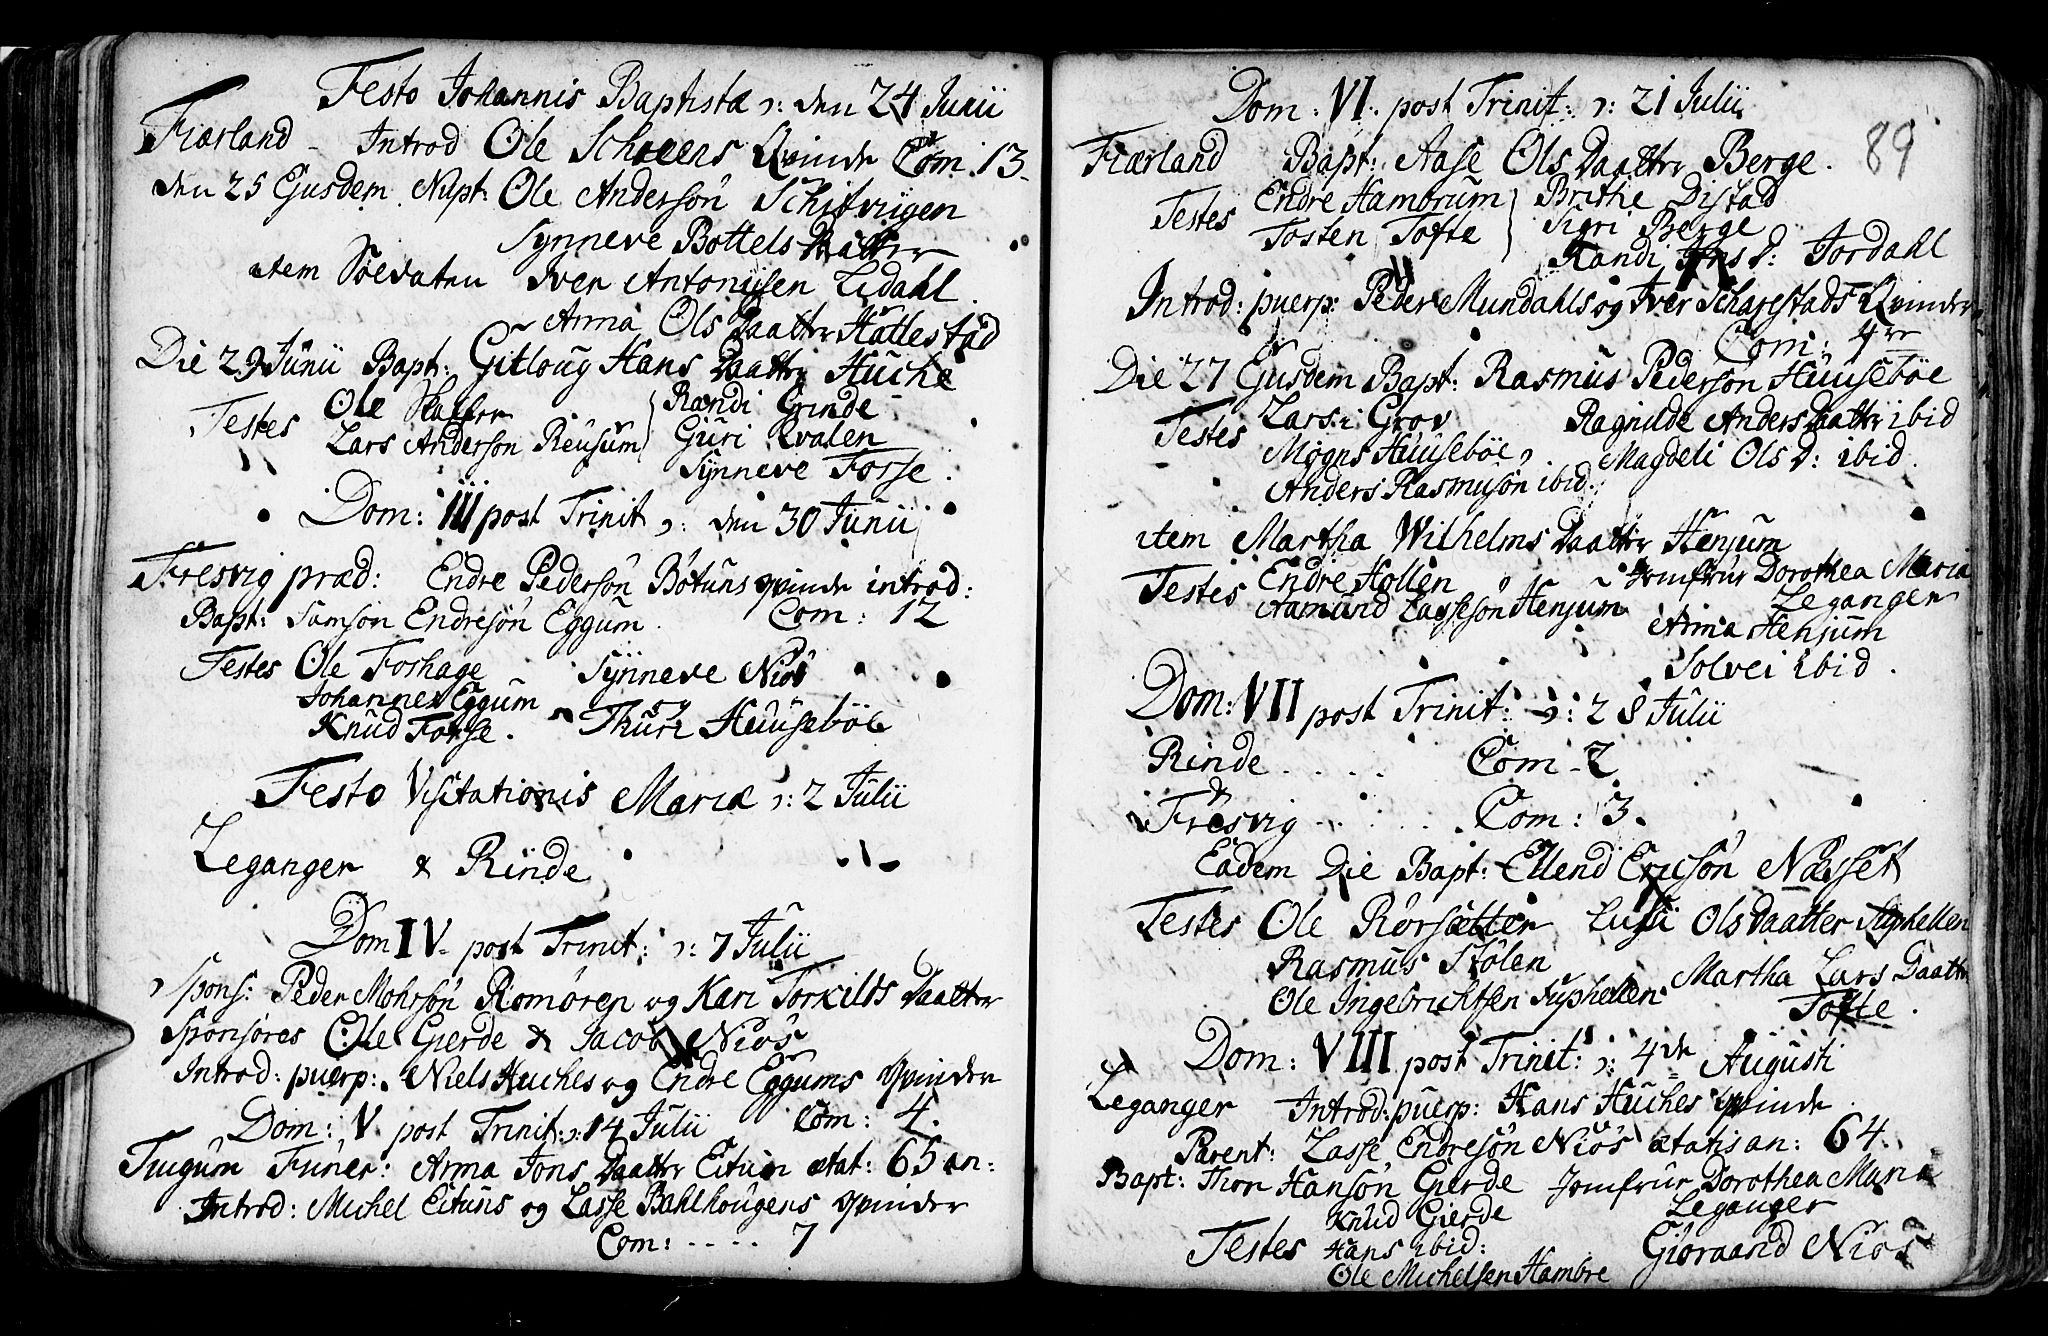 Festo Johannis Baptistæ ɔ: den 24 Junii
Fiærland - Introd Ole Scheens Qvinde Com: 13
den 25 Ejusdem Nupt: Ole Andersön Schitrügen
Synneve Bottels Daatter
item Soldaten Iver Antonisen Lidahl
Anna Ols Daatter Hatlestad
Die 29 Junii Bapt: Gitloug Hans Daatter Huche
Testes Ole Skatter Rændi Grinde
Lars Anderson Reusum Guri Qvalen
Synneve Forse.
Dom: III post Trinit ɔ: den 30 Junii
Fresvig præd: Endre Pedersön Bötuns qvinde introd:
Bapt: Samson Endresön Eggum. Com: 12
Testes Ole Foshage Synneve Niös
Johannes Eggum
Knud Forse. Thuri Huusebÿe
Festo Visitationis Mariæ ɔ: 2 Julii
Leganger & Rinde
Dom IV post Trinit: ɔ: 7 Julii
Spons: Peder Mohrsön Romören og Kari Torkilds Daatter
Sponsores Ole Gierde & Jacob Niös
Introd: puerp: Niels Huches og Endre Eggums qvinder
Dom: V post Trinit: ɔ: 14 Julii Com: 4.
Tiugum Funer: Anna Jons Daatter Eitun ætat: 65 an:
Introd: Michel Eituns og Lasse Bahlhougens qvinder
Com: .... 7
Dom: VI. post Trinit: ɔ: 21 Julii
89
Fiærland Bapt: Aase Ols Daatter Berge.
Testes Endre Hambrum Brithe Distad
Tosten Tofte Sigri Berge
Randi Jens D: Jordahl
Introd: puerp: Peder Mundahls og Iver Scharestads Qvinder
Com: 4
Die 27 Ejusdem Bapt: Rasmus Pederson Huuseböe
Testes Lars i Grov Ragnilde Anders Daatter ibid
Mogns Huuseböe, Magdeli Ols D: ibid.
Anders Rasmusön ibid:
item Martha Wilhelms Daatter Henjum
Testes Endre Hollen Jomfrur Dorothea Maria
Aamund Lassesön Henjum Leganger
Anna Henjum
Solvei ibid.
Dom: VII post Trinit: ɔ: 28 Julii
Rinde ..... Com - 7
&
Fresvig ..... Com: 3.
Eadem Die Bapt: Ellend Ericsön Næsset
Testes Ole Rörsætter Lussi Olsdaatter Suphellen
Rasmus Stölen Martha Lars Daatter
Ole Ingebrichtsen Suphellen Tofte.
Dom: VIII post Trinit: ɔ: 4de Augusti
Leganger Introd: puerp: Hans Huches qvinde.
Parent: Lasse Endresön Niös ætatis an: 64.
Bapt: Thor Hansön Gierde Jomfrur Dorothea Maria
Knud Gierde Leganger
Testes Hans ibid: Giöraand Niös
Ole Michelsen Hambre